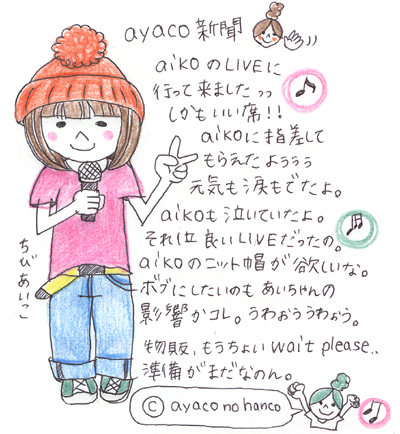 ayaco 新聞
aikoのLIVEに
行って来ましたっっ
しかもいい席!!
aikoに指差して
もらえたようぅぅ
元気も涙もでたよ。
aikoも泣いていたよ。
それ位良いLIVEだったの。
aikoのニット帽が欲しいな。
ボブにしたいのもあいちゃんの
影響かコレ。うわぉううわぉう。
物販、もうちょいwait please、、
準備がまだなのん。
ちびあいっこ
© ayaco no hanco